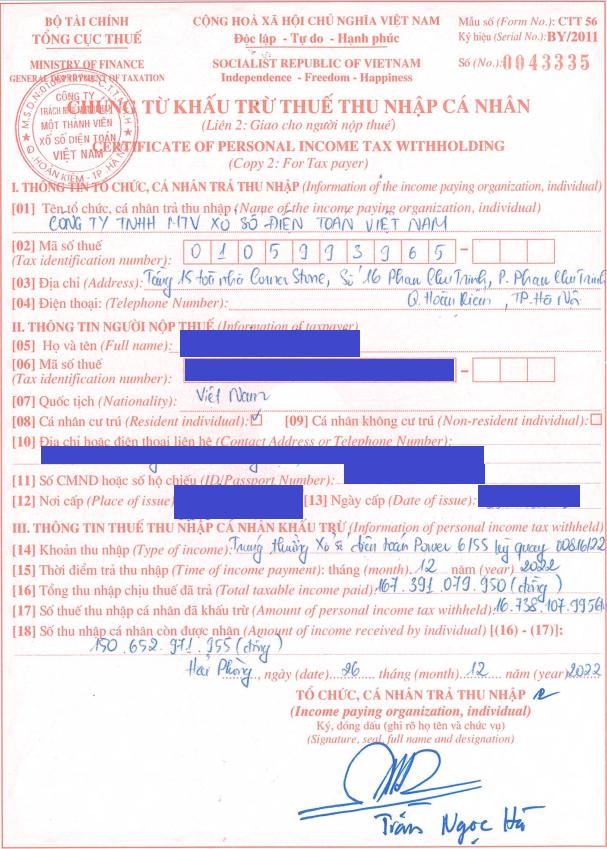 BỘ TÀI CHÍNH
TỔNG CỤC THUẾ
MINISTRY OF FINANCE
GENERAL DEPARTMENT OF TAXATION
CỘNG HOÀ XÃ HỘI CHỦ NGHĨA VIỆT NAM
Độc lập - Tự do - Hạnh phúc
SOCIALIST REPUBLIC OF VIETNAM
Independence - Freedom - Happiness
Mẫu số (Form No.): CTT 56
Ký hiệu (Serial No.): BY/2011
Số (No.): 0043335
CÔNG TY
TRÁCH NHIỆM HỮU HẠN
MỘT THÀNH VIÊN
XỔ SỐ ĐIỆN TOÁN
VIỆT NAM
Q. HOÀN KIẾM - TP. HÀ NỘI
CHỨNG TỪ KHẤU TRỪ THUẾ THU NHẬP CÁ NHÂN
(Liên 2: Giao cho người nộp thuế)
CERTIFICATE OF PERSONAL INCOME TAX WITHHOLDING
(Copy 2: For Tax payer)
I. THÔNG TIN TỔ CHỨC, CÁ NHÂN TRẢ THU NHẬP (Information of the income paying organization, individual)
[01] Tên tổ chức, cá nhân trả thu nhập (Name of the income paying organization, individual)
CÔNG TY TNHH MTV XỔ SỐ ĐIỆN TOÁN VIỆT NAM
[02] Mã số thuế
(Tax identification number): 0 1 0 5 9 9 3 9 6 5 –
[03] Địa chỉ (Address): Tầng 15 toà nhà Corner Stone, Số 16 Phan Chu Trinh, P. Phan Chu Trinh
[04] Điện thoại: (Telephone Number): Q. Hoàn Kiếm, TP. Hà Nội
II. THÔNG TIN NGƯỜI NỘP THUẾ (Information of taxpayer)
[05] Họ và tên (Full name):
[06] Mã số thuế
(Tax identification number): –
[07] Quốc tịch (Nationality): Việt Nam
[08] Cá nhân cư trú (Resident individual): ☑ [09] Cá nhân không cư trú (Non-resident individual): ☐
[10] Địa chỉ hoặc điện thoại liên hệ (Contact Address or Telephone Number):
[11] Số CMND hoặc số hộ chiếu (ID/Passport Number):
[12] Nơi cấp (Place of issue) [13] Ngày cấp (Date of issue):
III. THÔNG TIN THUẾ THU NHẬP CÁ NHÂN KHẤU TRỪ (Information of personal income tax withheld)
[14] Khoản thu nhập (Type of income): Trúng thưởng Xổ số điện toán Power 6/55 kỳ quay 00816/22
[15] Thời điểm trả thu nhập (Time of income payment): tháng (month) 12 năm (year) 2022
[16] Tổng thu nhập chịu thuế đã trả (Total taxable income paid): 167.391.079.950 (đồng)
[17] Số thuế thu nhập cá nhân đã khấu trừ (Amount of personal income tax withheld): 16.738.107.995
[18] Số thu nhập cá nhân còn được nhận (Amount of income received by individual) [(16) - (17)]:
150.652.971.955 (đồng)
Hải Phòng, ngày (date) 26 tháng (month) 12 năm (year) 2022
TỔ CHỨC, CÁ NHÂN TRẢ THU NHẬP
(Income paying organization, individual)
Ký, đóng dấu (ghi rõ họ tên và chức vụ)
(Signature, seal, full name and designation)
Trần Ngọc Hà